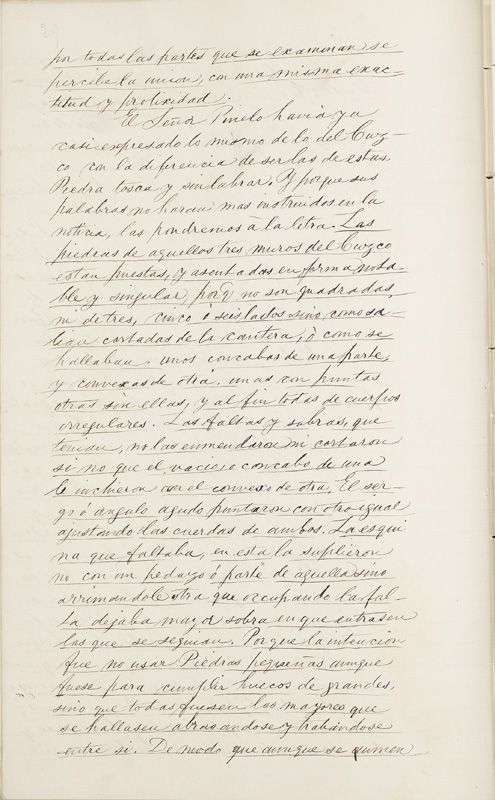 por todas las partes que se examinan se
percibe la union, con una misma exac-
titud y prolixidad.
El Señor Pinelo havia ya
casi expresado lo mismo de lo del Cuzo-
co con la diferencia de ser las de estas
Piedra tosca y sin labrar. Y porque sus
palabras no hacen mas instruidos en la
noticia, las pondremos à la letra. Las
piedras de aquellos tres muros del Cuzco
estan puestas, y asentadas en forma nota-
ble y singular, porq̃ no son quadradas,
ni de tres, cinco o seis lados sino como sa-
lian cortadas de la cantera, ò como se
hallaban. unos concabas de una parte,
y convexas de otra. unas con puntas
otras sin ellas, y al fin todas de cuerpos
irregulares. Las faltas y sobras, que
tenian, no las enmendaron ni cortaron
si no que el vacio, o concabo de una
le inchieron con el convexo de otra. El ser-
go ó angulo agudo juntaron con otro igual
ajustando las cuerdas de ambos. La esqui
na que faltaba, en esta la suplieron
no con un pedazo ó parte de aquella sino
arrimandole otra que occupando la fal-
ta dejaba mayor sobra en que entrasen
las que se seguian. Porque la intencion
fue no usar Piedras pequeñas aunque
fuese para cumplir huecos de grandes,
sino que todas fuesen las mayores que
se hallasen abrasandose y trabandose
entre si. De modo que aunque se